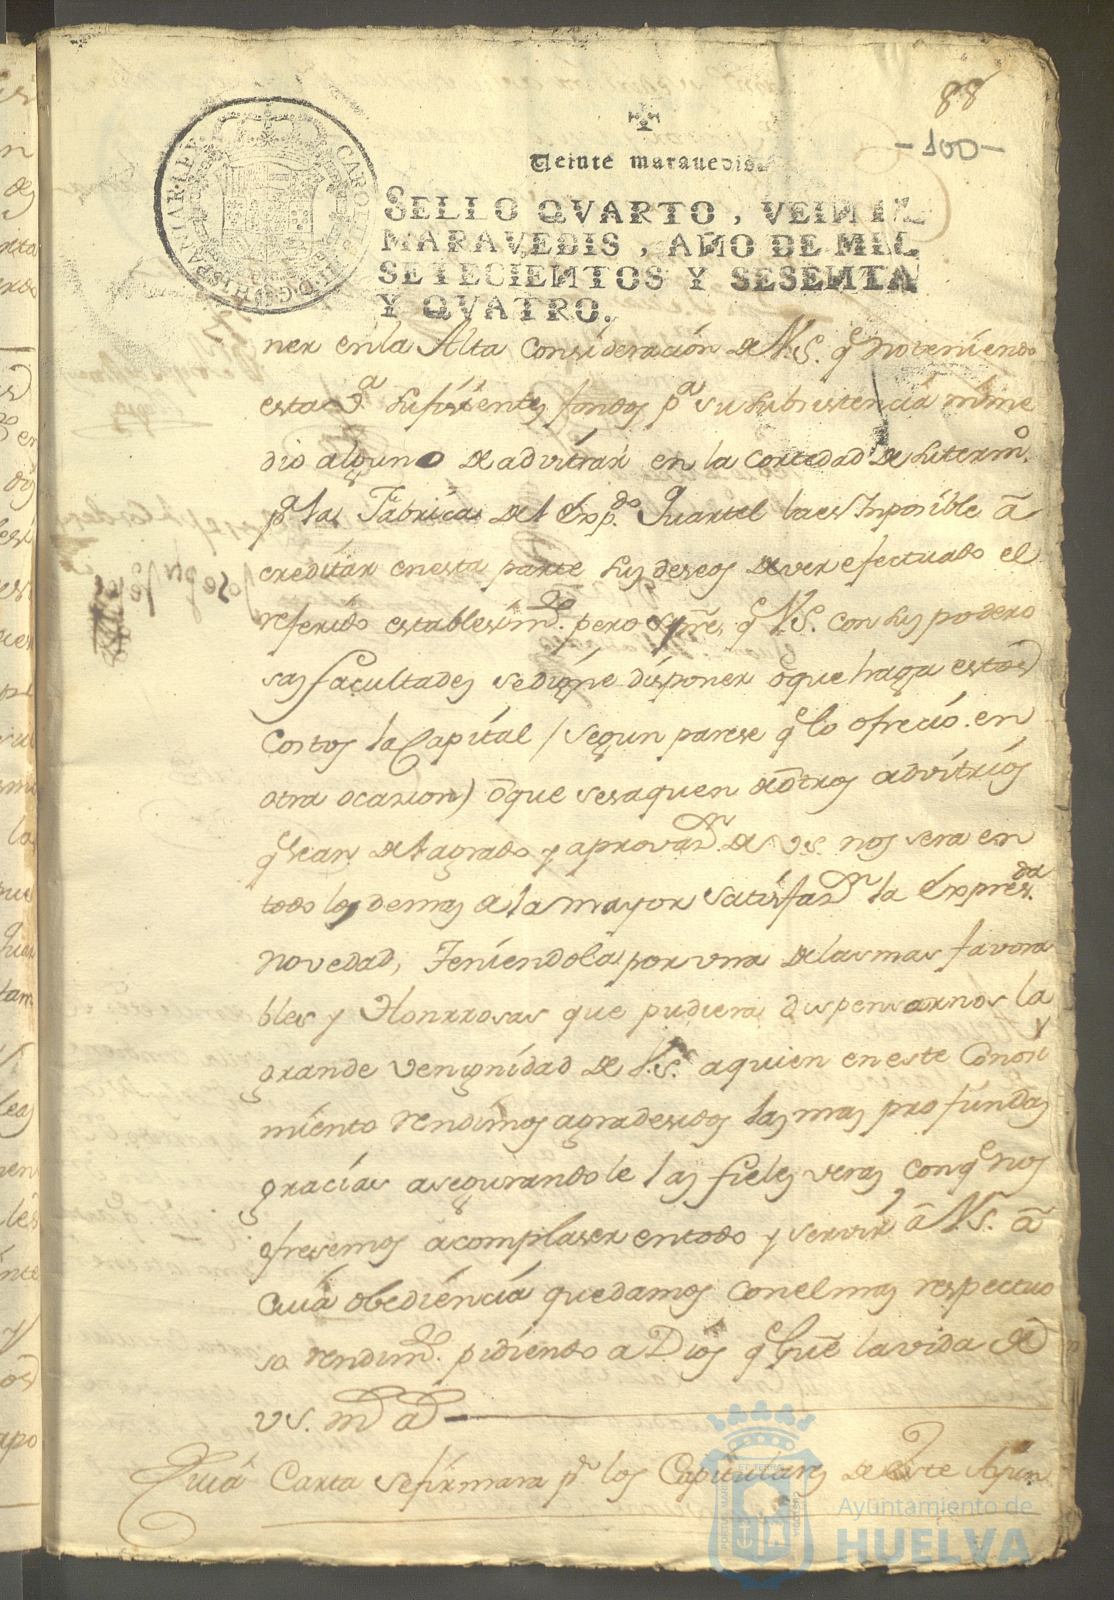 88
-100-
Veinte maravedis.
SELLO QVARTO, VEINTE
MARAVEDIS, AÑO DE MIL
SETECIENTOS Y SESENTA
Y QVATRO.
CAROLUS III D G HISPANIAR REX
ner en la Alta Consideración de V.S. q.e no teniendo
esta V.a sufisientes fondos p.a su subsistencia ni me
dio alguno de advitrar en la cortedad de su term.o
p.a las Fabricas del Exp.do Quartel la es Imposible a
creditar en esta parte sus deseos de ver efectuado el
referido establesim.to pero sp.re q.e V.S. con sus podero
sas facultades se digne disponer o que haga estos
Costos la Capital / segun parese q.e lo ofreció en
otra ocazion) o que se saquen de otros advitrios
q.e sean del agrado y aprovaz.n de V.S. nos sera en
todo lo demas de la mayor satisfaz.n la Expres.da
novedad, teniendola por una de las mas favora
bles y Honrrosas que pudiera dispensarnos la
grande venignidad de V.S. a quien en este Conosi
miento rendimos agradesidos las mas profundas
gracias asegurandole las fieles veras con q.e nos
ofresemos a complaser en todo y servir a V.S. a
cuia obediencia quedamos con el mas respectuo
so rendim.to pidiendo a Dios q.e gue la vida de
VS. m.s a.s
Cuia Carta se firmara p.r los Capitulares de este Ayun
Ayuntamiento de
HUELVA